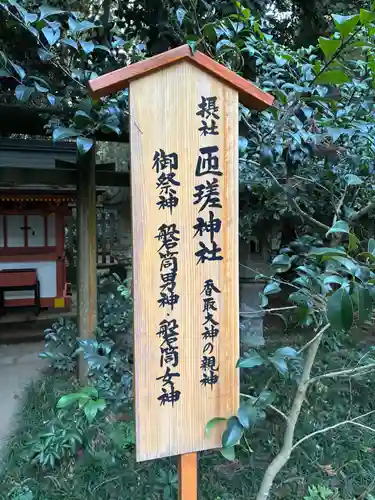 摂社 匝瑳神社 香取大神の親神
御祭神 磐筒男神・磐筒女神